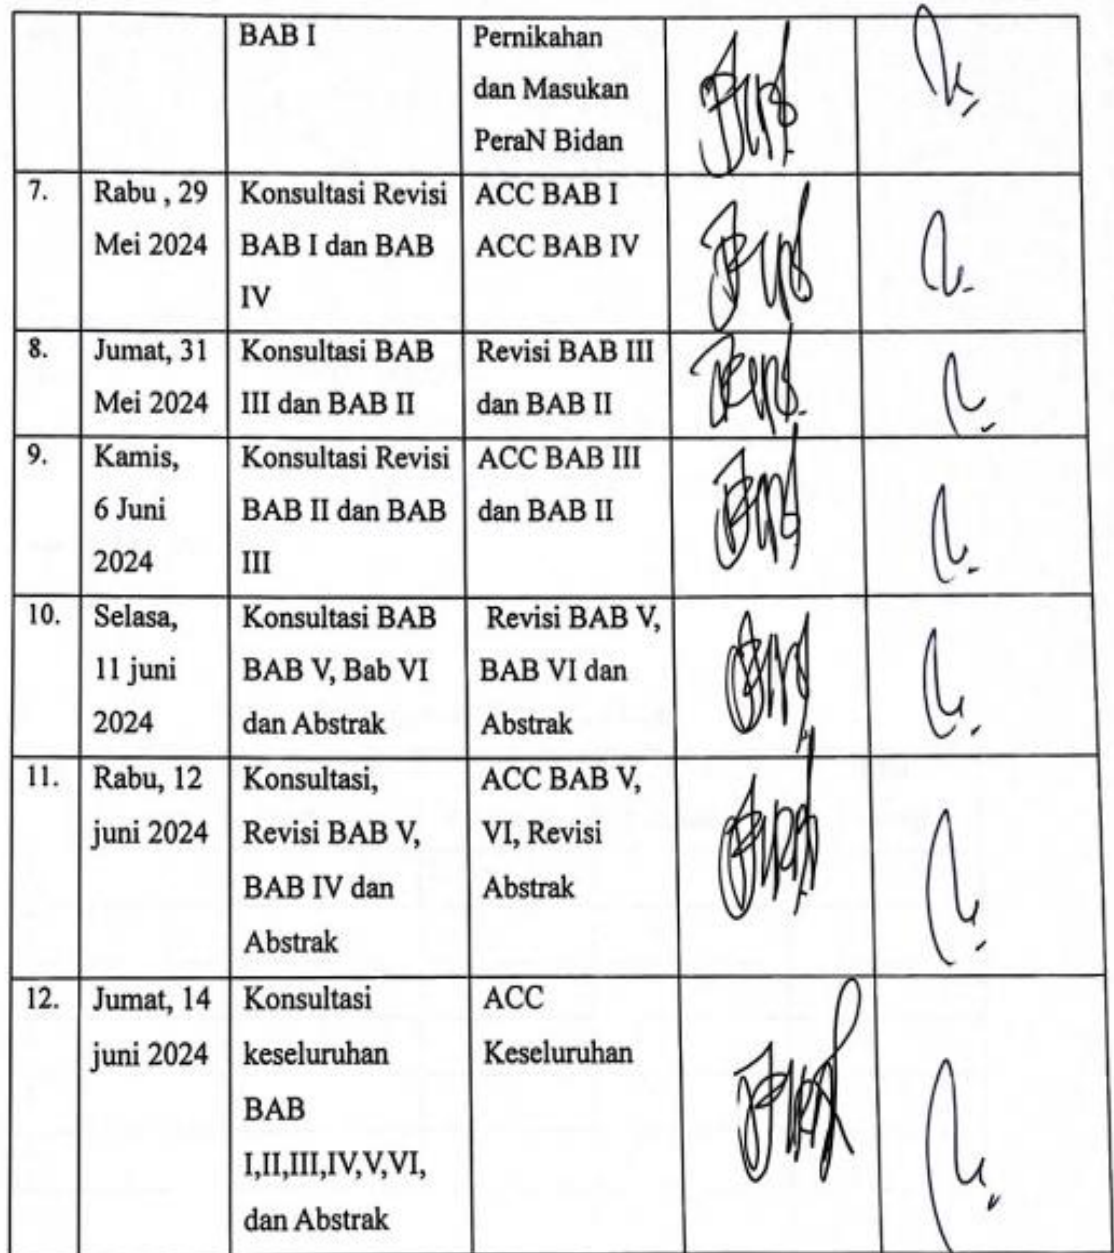 BAB I
Pernikahan
dan Masukan
PeraN Bidan
7.
Rabu , 29
Mei 2024
Konsultasi Revisi
BAB I dan BAB
IV
ACC BAB I
ACC BAB IV
8.
Jumat, 31
Mei 2024
Konsultasi BAB
III dan BAB II
Revisi BAB III
dan BAB II
9.
Kamis,
6 Juni
2024
Konsultasi Revisi
BAB II dan BAB
III
ACC BAB III
dan BAB II
10.
Selasa,
11 juni
2024
Konsultasi BAB
BAB V, Bab VI
dan Abstrak
Revisi BAB V,
BAB VI dan
Abstrak
11.
Rabu, 12
juni 2024
Konsultasi,
Revisi BAB V,
BAB IV dan
Abstrak
ACC BAB V,
VI, Revisi
Abstrak
12.
Jumat, 14
juni 2024
Konsultasi
keseluruhan
BAB
I,II,III,IV,V,VI,
dan Abstrak
ACC
Keseluruhan